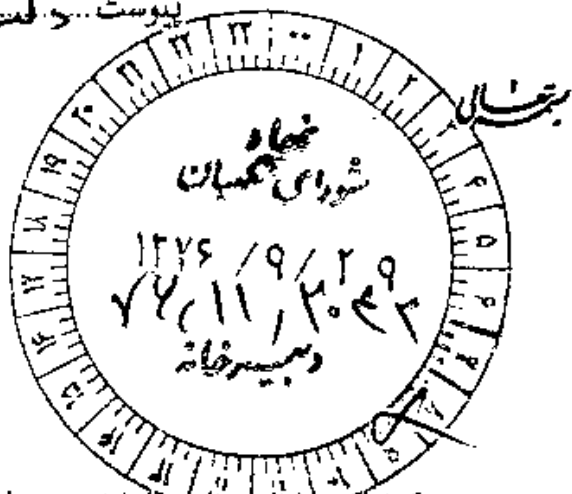 پیوست
بسمه تعالی
نهاد
شورای نگهبان
۱۳۷۶/۹/۲۹
دبیرخانه
۰۰ ۱ ۲ ۳ ۴ ۵ ۶ ۷ ۸ ۹ ۱۰ ۱۱ ۱۲ ۱۳ ۱۴ ۱۵ ۱۶ ۱۷ ۱۸ ۱۹ ۲۰ ۲۱ ۲۲ ۲۳